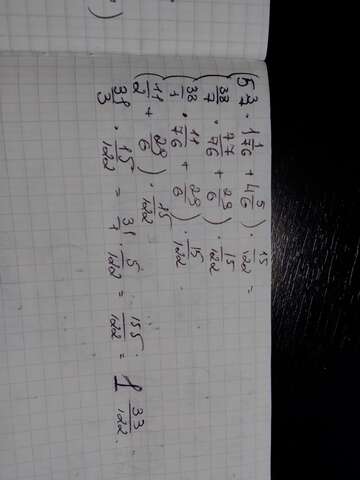 (5 3/7 · 1 1/76 + 4 5/6) · 15/122 =
(38/7 · 77/76 + 29/6) · 15/122
(38/1 · 11/76 + 29/6) · 15/122
(11/2 + 29/6) · 15/122
31/3 · 15/122 = 31/1 · 5/122 = 155/122 = 1 33/122.